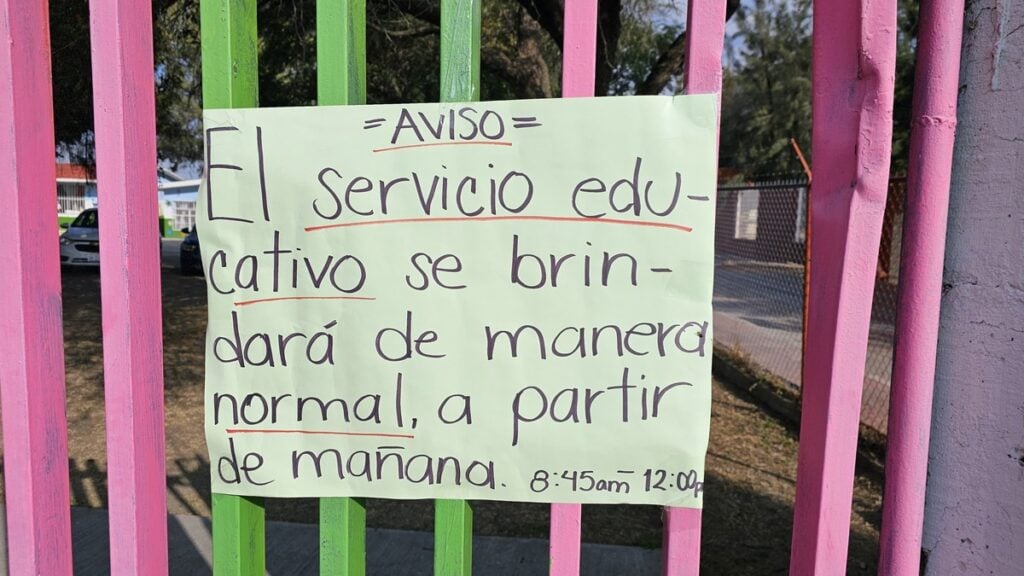 = AVISO =
El servicio edu-
cativo se brin-
dará de manera
normal, a partir
de mañana. 8:45am - 12:00p